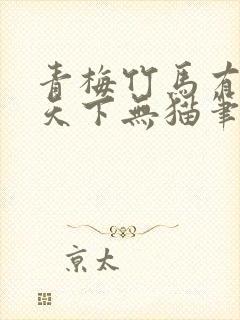 青梅竹馬有
天下無猫筆
京太